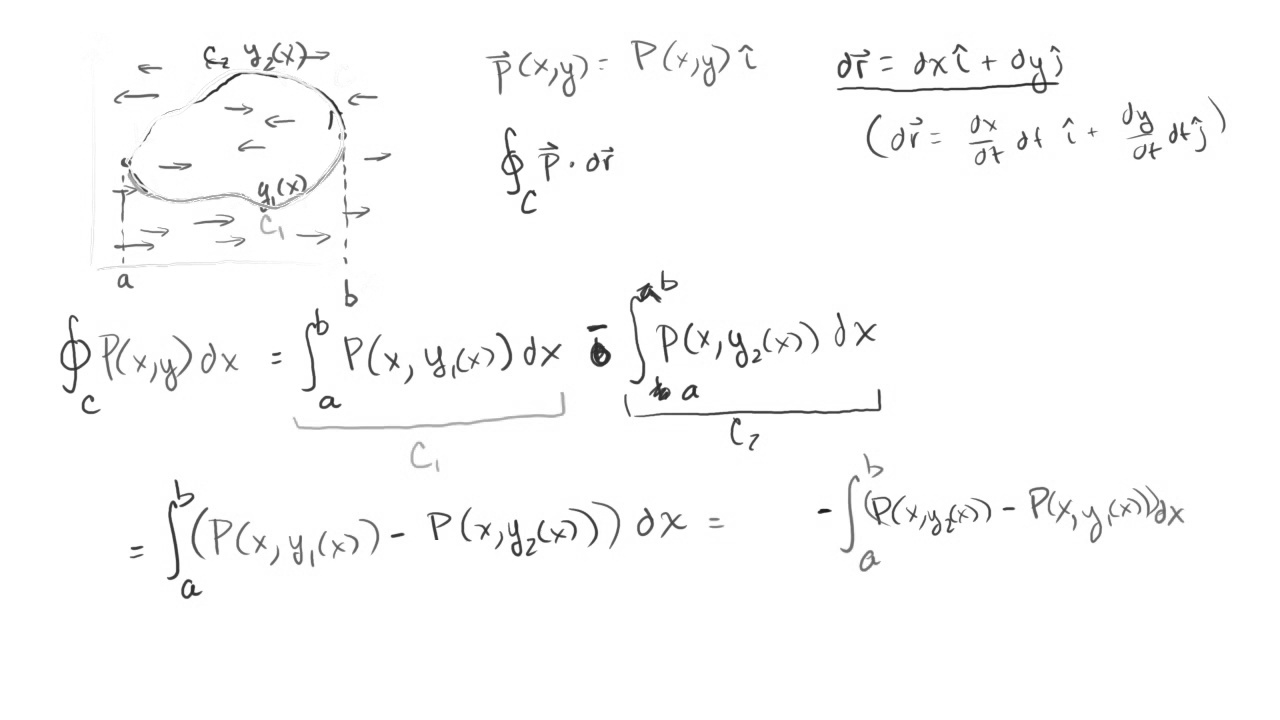 C₂ y₂(x)
y₁(x)
C₁
a
b
p⃗(x,y) = P(x,y) î
dr⃗ = dx î + dy ĵ
(dr⃗ = dx/dt dt î + dy/dt dt ĵ)
∮_C p⃗ · dr⃗
∮_C P(x,y) dx = ∫_a^b P(x, y₁(x)) dx - ∫_a^b P(x, y₂(x)) dx
C₁
C₂
= ∫_a^b (P(x, y₁(x)) - P(x, y₂(x))) dx = - ∫_a^b (P(x, y₂(x)) - P(x, y₁(x))) dx